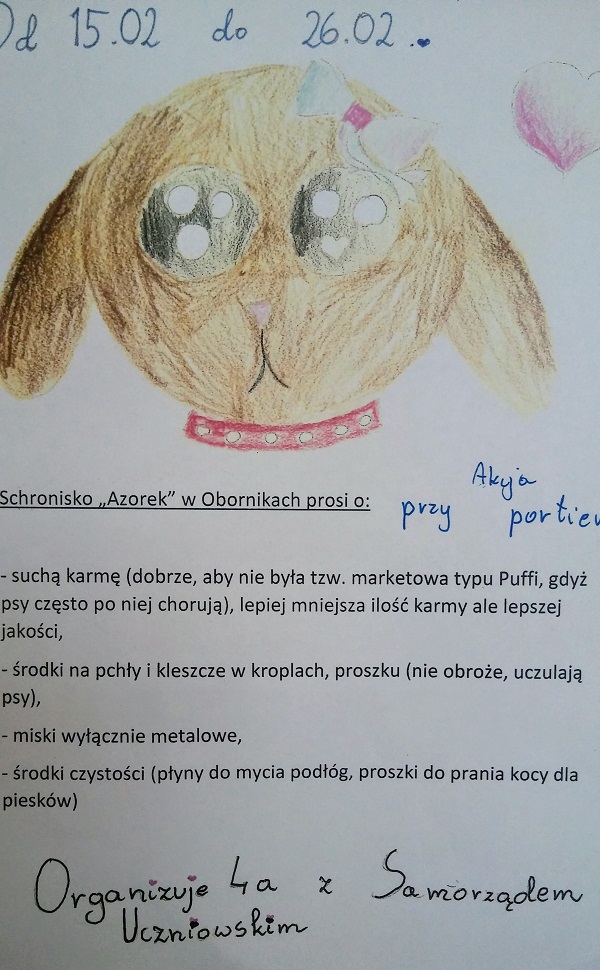 Od 15.02 do 26.02.
Schronisko „Azorek” w Obornikach prosi o:
Akcja
przy
- suchą karmę (dobrze, aby nie była tzw. marketowa typu Puffi, gdyż
psy często po niej chorują), lepiej mniejsza ilość karmy ale lepszej
jakości,
- środki na pchły i kleszcze w kroplach, proszku (nie obroże, uczulają
psy),
- miski wyłącznie metalowe,
- środki czystości (płyny do mycia podłóg, proszki do prania kocy dla
piesków)
Organizuje 4a z Samorządem
Uczniowskim